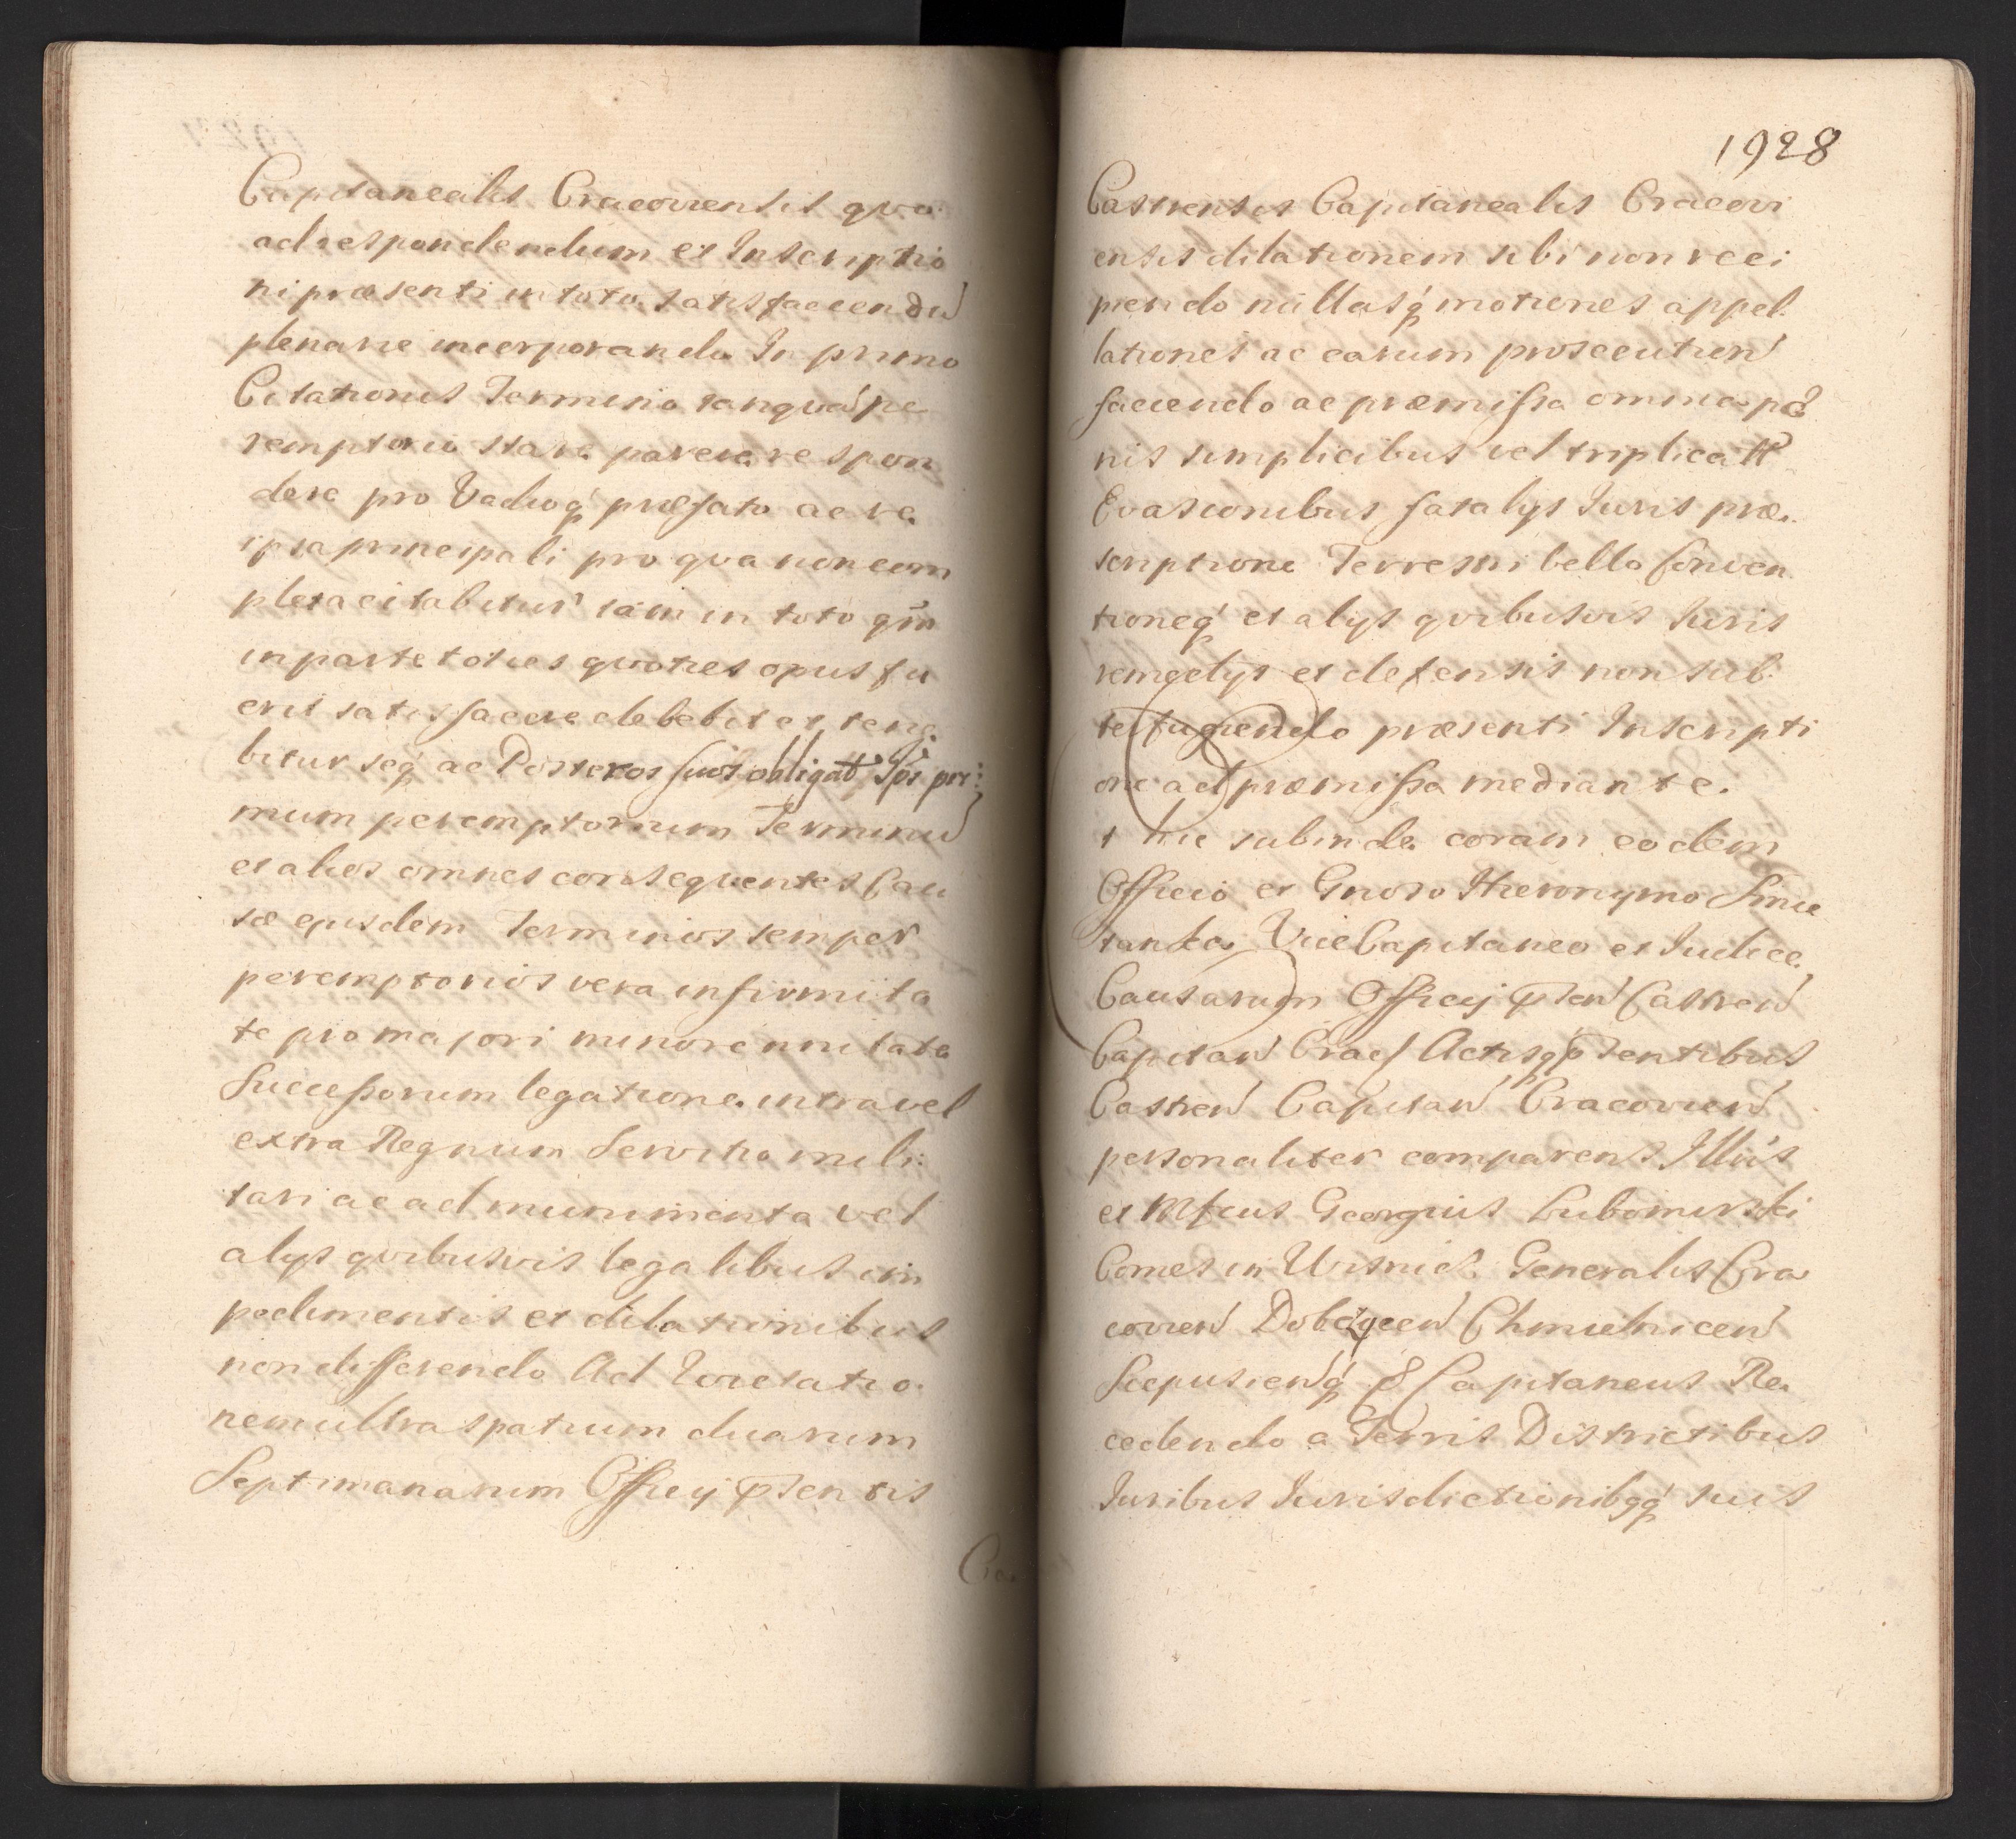 Capitanealis Cracoviensis qva
ad respondendum et Inscriptio
ni præsenti in toto satisfaciendū
plenarie incorporando In primo
Citationis Termino tanqvá pe
remptorio stare parere respon
dere pro Vadioq́ præfato ac re
ipsa principali pro qva non com
pleta citabitur tám in toto qm̃
in parte toties quoties opus fu
erit satisfacere debebit et tene
bitur seq́ ac Posteros suos obligat Ipś pri:
mum peremptorium Terminū
et alios omnes consequentes Cau
sæ ejusdem Terminos semper
peremptorios vera infirmita
te pro majori minorennitate
Successorum legatione intra vel
extra Regnum Servitio mili:
tari ac ad munimenta vel
alys qvibusvis legalibus im
pedimentis et dilationibus
non differendo Ad Toietatio
nem ultra spatium duarum
Septimanarum Officij p̃sentis
Cas
1928
Castrensis Capitanealis Cracovi
ensis dilationem sibi non reci
piendo nullasq́ motiones appel
lationes ac earum prosecution̄
faciendo ac præmissa omnia pæ
nis simplicibus vel triplicatt
Evasionibus fatalys Iuris præ
scriptione Terrestri bello Conven
tioneq́ et alys qvibusvis Iuris
remedys et defensis non sub
terfugiendo præsenti Inscripti
one ad præmissa mediante.
t hic subinde coram eodem
Officio et Gnoso Hieronymo Smie
tanka Vice Capitaneo et Iudice
Causarum Officij p̃sen̄ Castren̄
Capitan̄ Cracȷ Actisq́ p̃sentibus
Castren̄ Capitan̄ Cracovien̄
personaliter comparens Illuś
et Mfcus Georgius Lubomirski
Comes in Wisnicz Generalis Cra
covien̄ Dobczycen̄ Chmielnicen̄
Scepusien̄q́ & Capitaneus Re
cedendo a Terris Districtibus
Iuribus Iurisdictionibqq́ suis